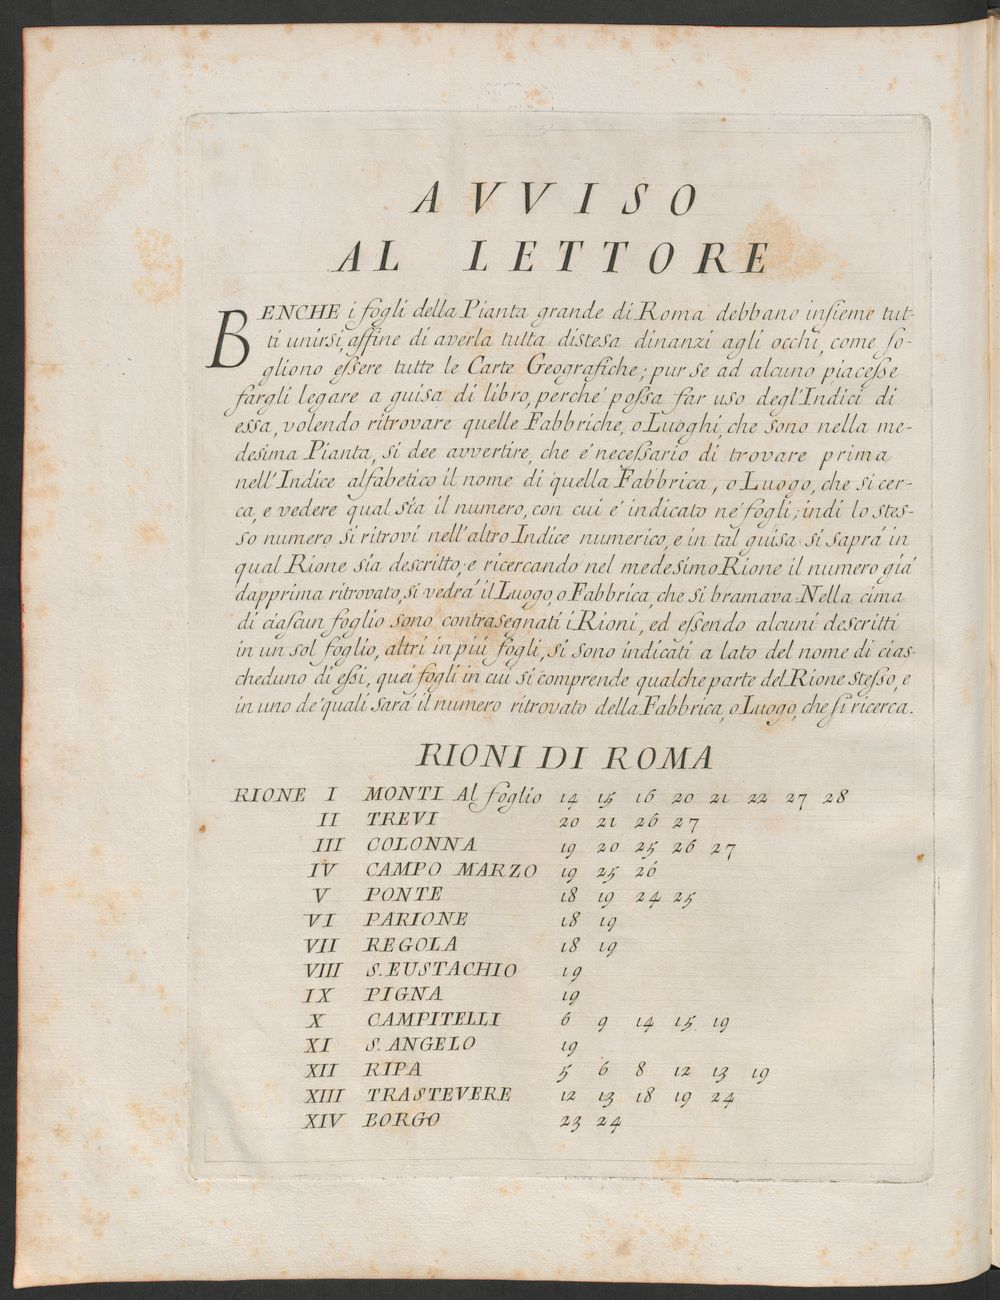 AVVISO
AL LETTORE
BENCHE i fogli della Pianta grande di Roma debbano insieme tut-
ti unirsi, affine di averla tutta distesa dinanzi agli occhi, come so-
gliono essere tutte le Carte Geografiche; pur se ad alcuno piacesse
fargli legare a guisa di libro, perché possa far uso degl'Indici di
essa, volendo ritrovare quelle Fabbriche, o Luoghi, che sono nella me-
desima Pianta, si dee avvertire, che é necessario di trovare prima
nell'Indice alfabetico il nome di quella Fabbrica, o Luogo, che si cer-
ca, e vedere qual sia il numero, con cui é indicato ne' fogli; indi lo stes-
so numero si ritrovi nell'altro Indice numerico, e in tal guisa si saprá in
qual Rione sia descritto, e ricercando nel medesimo Rione il numero giá
dapprima ritrovato, si vedrá il Luogo, o Fabbrica, che si bramava. Nella cima
di ciascun foglio sono contrasegnati i Rioni, ed essendo alcuni descritti
in un sol foglio, altri in piú fogli, si sono indicati a lato del nome di cias-
cheduno di essi, quei fogli in cui si comprende qualche parte del Rione stesso, e
in uno de' quali sará il numero ritrovato della Fabbrica, o Luogo, che si ricerca.
RIONI DI ROMA
RIONE I MONTI Al foglio 14 15 16 20 21 22 27 28
II TREVI 20 21 26 27
III COLONNA 19 20 25 26 27
IV CAMPO MARZO 19 25 26
V PONTE 18 19 24 25
VI PARIONE 18 19
VII REGOLA 18 19
VIII S. EUSTACHIO 19
IX PIGNA 19
X CAMPITELLI 6 9 14 15 19
XI S. ANGELO 19
XII RIPA 5 6 8 12 13 19
XIII TRASTEVERE 12 13 18 19 24
XIV BORGO 23 24